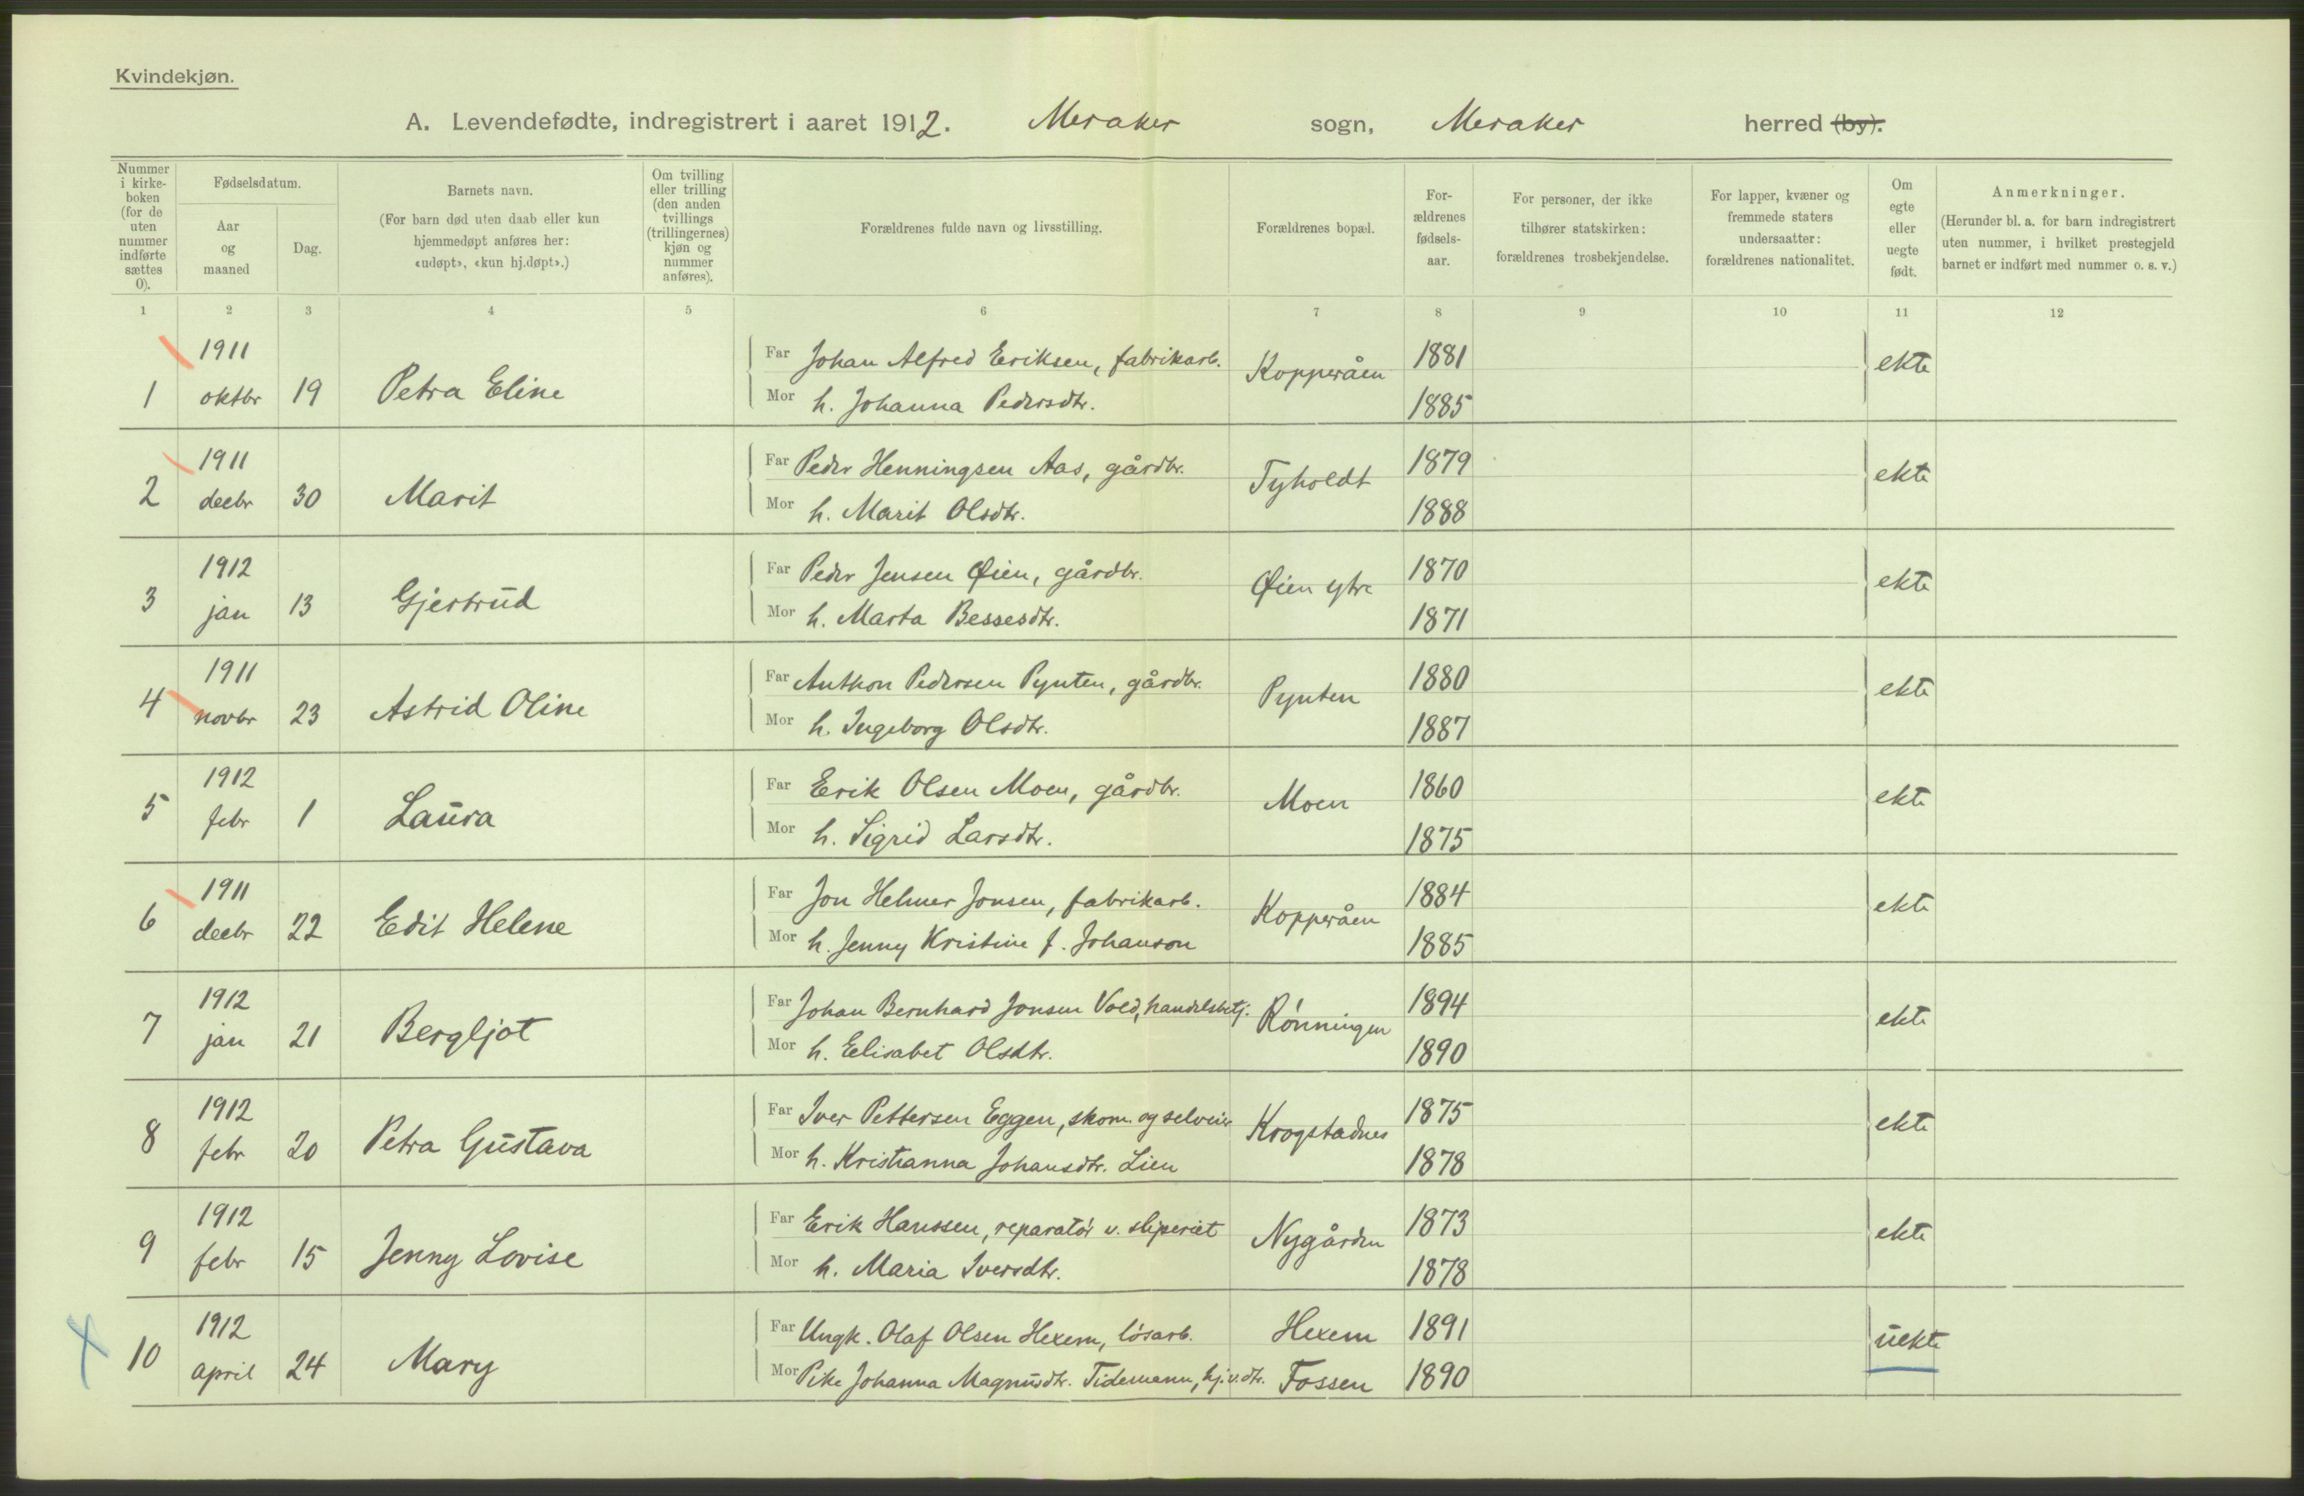 Kvindekjøn.
A. Levendefødte, indregistrert i aaret 1912. Meraker sogn, Meraker herred (by).
Nummer i kirke-boken (for de uten nummer indførte sættes 0).
Fødselsdatum.
Aar og maaned
Dag.
Barnets navn.
(For barn død uten daab eller kun hjemmedøpt anføres her: «udøpt», «kun hj.døpt».)
Om tvilling eller trilling (den anden tvillings (trillingernes) kjøn og nummer anføres).
Forældrenes fulde navn og livsstilling.
Forældrenes bopæl.
For-ældrenes fødsels-aar.
For personer, der ikke tilhører statskirken: forældrenes trosbekjendelse.
For lapper, kvæner og fremmede staters undersaatter: forældrenes nationalitet.
Om egte eller uegte født.
Anmerkninger.
(Herunder bl. a. for barn indregistrert uten nummer, i hvilket prestegjeld barnet er indført med nummer o. s. v.)
1 2 3 4 5 6 7 8 9 10 11 12
1911 Far Johan Alfred Eriksen, fabrikarb. Kopperåen 1881 ekte
1 oktbr 19 Petra Eline Mor h. Johanna Pedersdtr. 1885
1911 Far Peder Henningsen Aas, gårdbr. Tyholdt 1879 ekte
2 decbr 30 Marit Mor h. Marit Olsdtr. 1888
1912 Far Peder Jensen Øien, gårdbr. Øien ytre 1870 ekte
3 jan 13 Gjertrud Mor h. Marta Bessesdtr. 1871
1911 Far Anthon Pedersen Pynten, gårdbr. Pynten 1880 ekte
4 novbr 23 Astrid Oline Mor h. Ingeborg Olsdtr. 1887
1912 Far Erik Olsen Moen, gårdbr. Moen 1860 ekte
5 febr 1 Laura Mor h. Sigrid Larsdtr. 1875
1911 Far Jon Helmer Jonsen, fabrikarb. Kopperåen 1884 ekte
6 decbr 22 Edit Helene Mor h. Jenny Kristine f. Johanson 1885
1912 Far Johan Bernhard Jonsen Vold, handelsbetj. Rønningen 1894 ekte
7 jan 21 Bergljot Mor h. Elisabet Olsdtr. 1890
1912 Far Iver Pettersen Eggen, skom. og selveier Krogstadnes 1875 ekte
8 febr 20 Petra Gustava Mor h. Kristianna Johansdtr. Lien 1878
1912 Far Erik Hanssen, reparatør v. sliperiet Nygården 1873 ekte
9 febr 15 Jenny Lovise Mor h. Maria Iversdtr. 1878
1912 Far Ungk. Olaf Olsen Hexem, løsarb. Hexem 1891 uekte
10 april 24 Mary Mor Pike Johanna Magnusdtr. Tidemann, hj.v.dtr. Fossen 1890